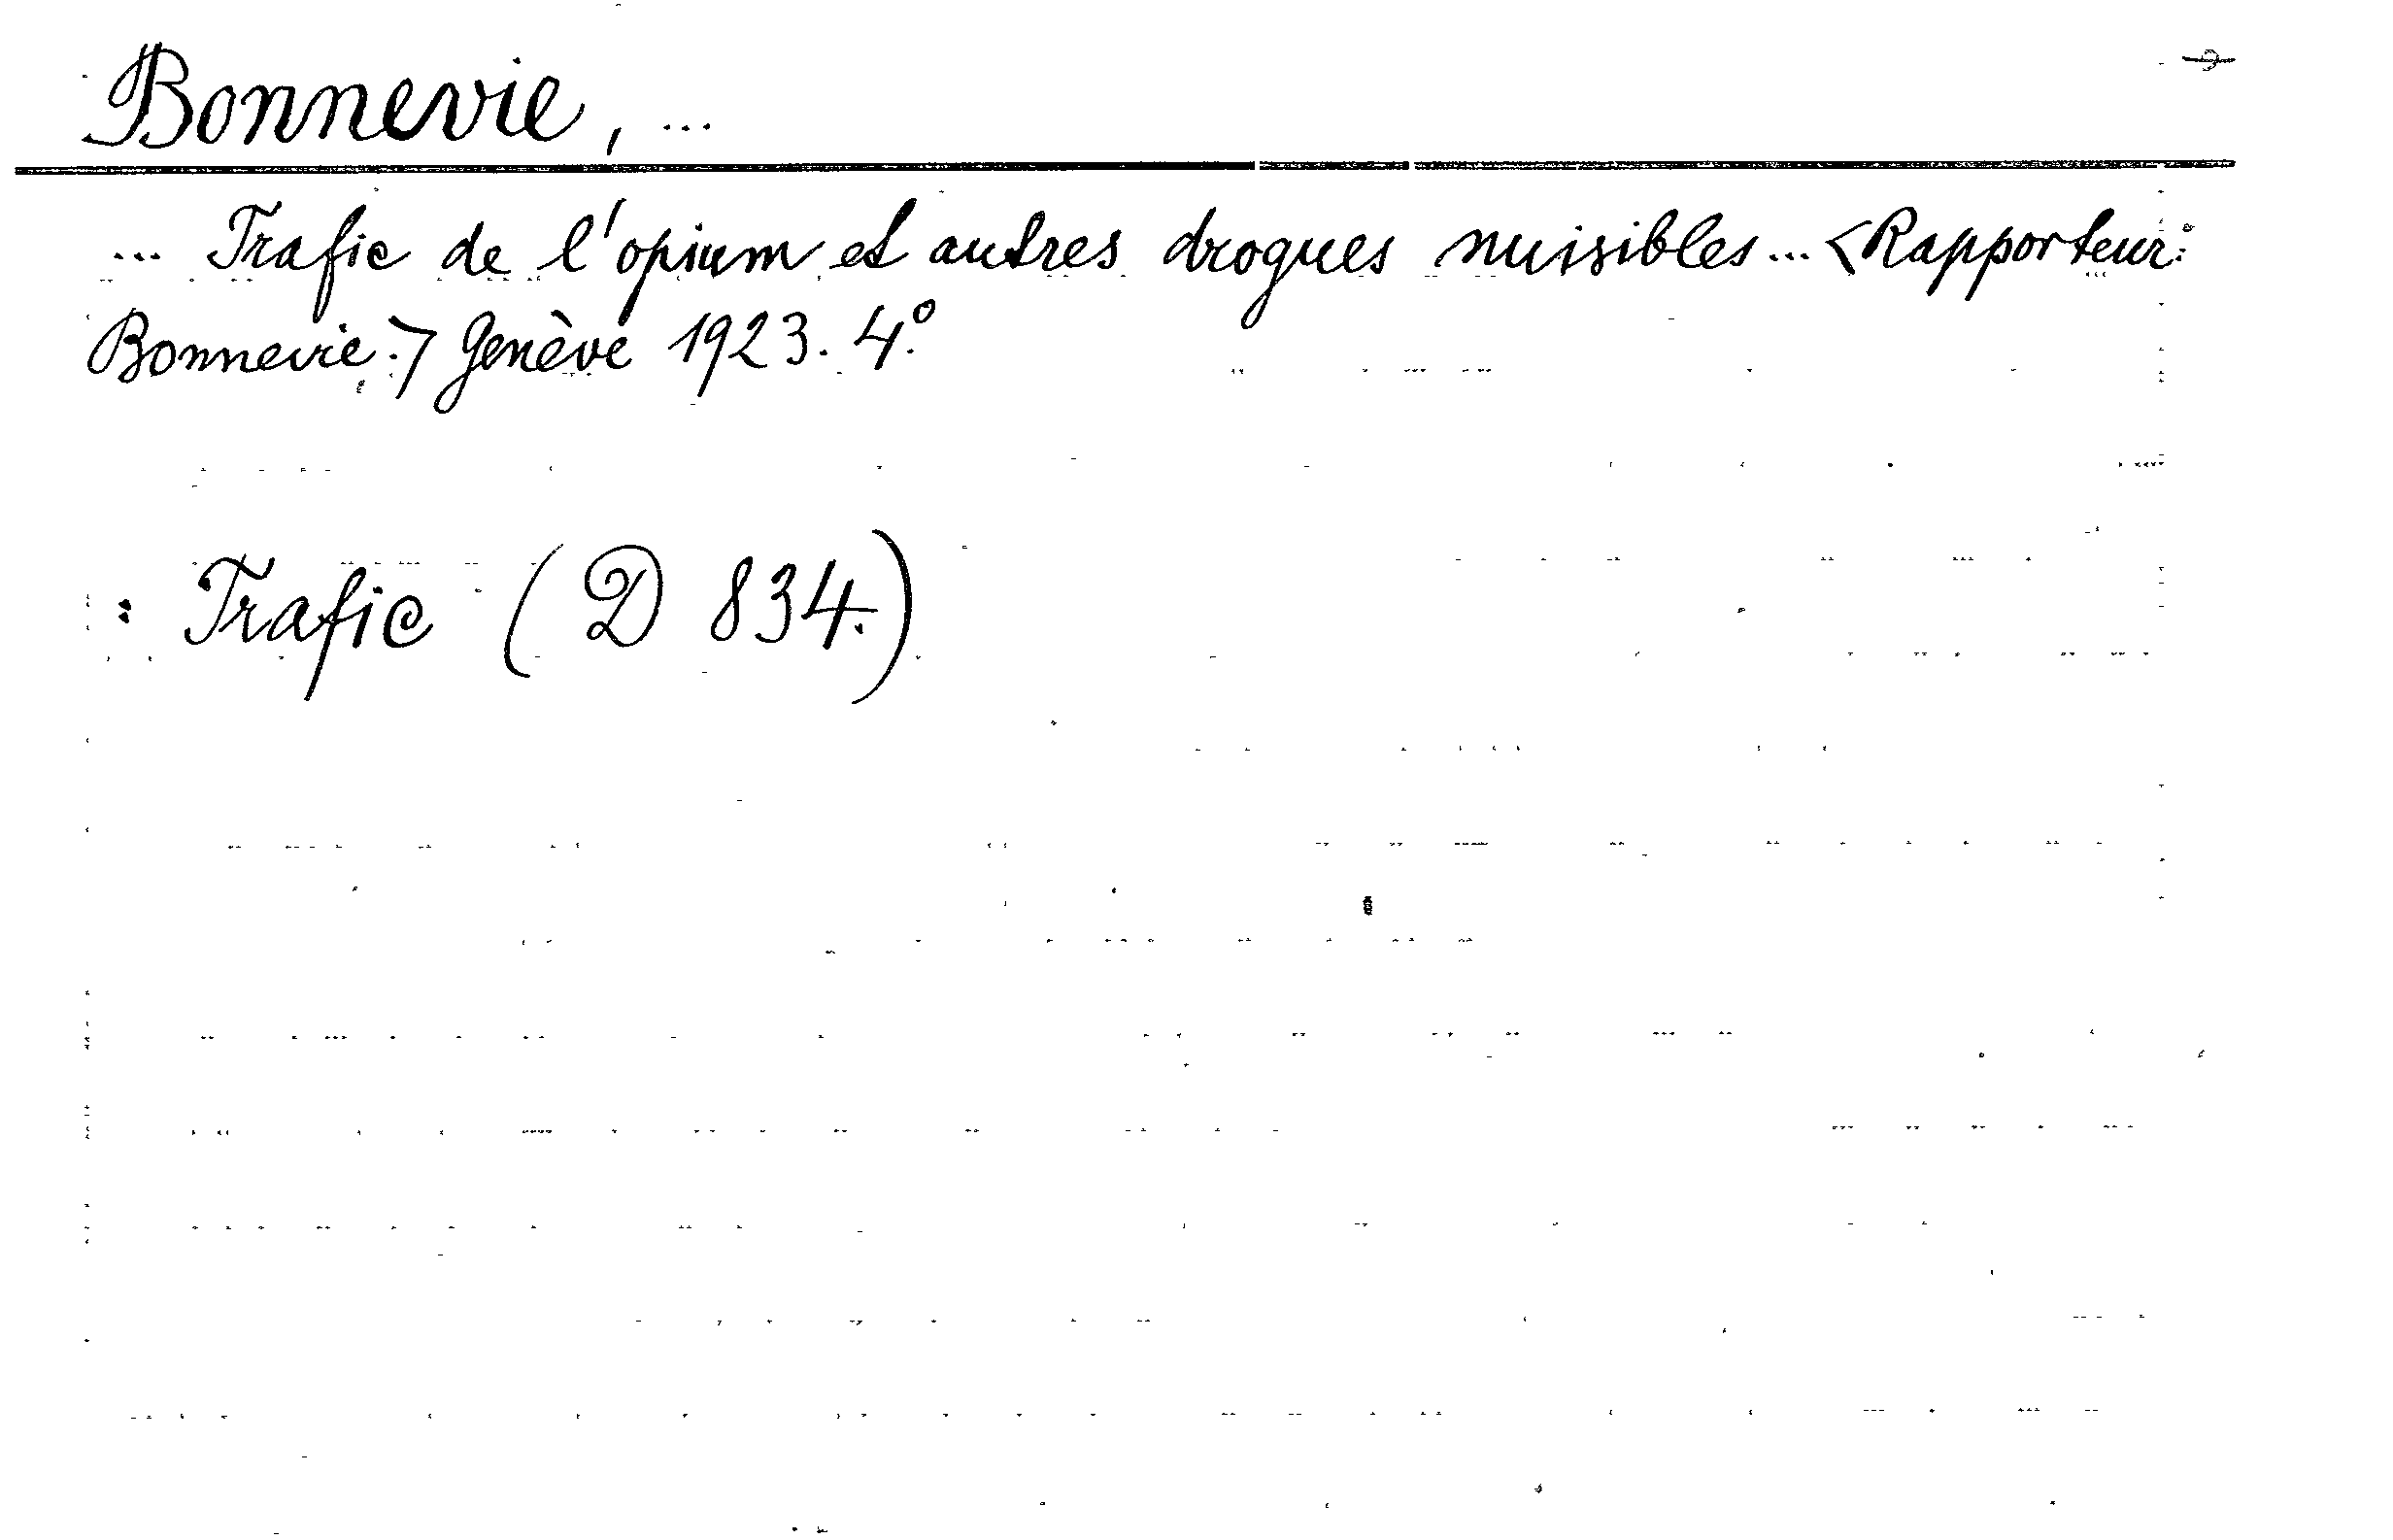 Bonnevie, ...
... Trafic de l'opium et autres drogues nuisibles ... <Rapporteur:
Bonnevie.> Genève 1923. 4.º
: Trafic (D 834.)